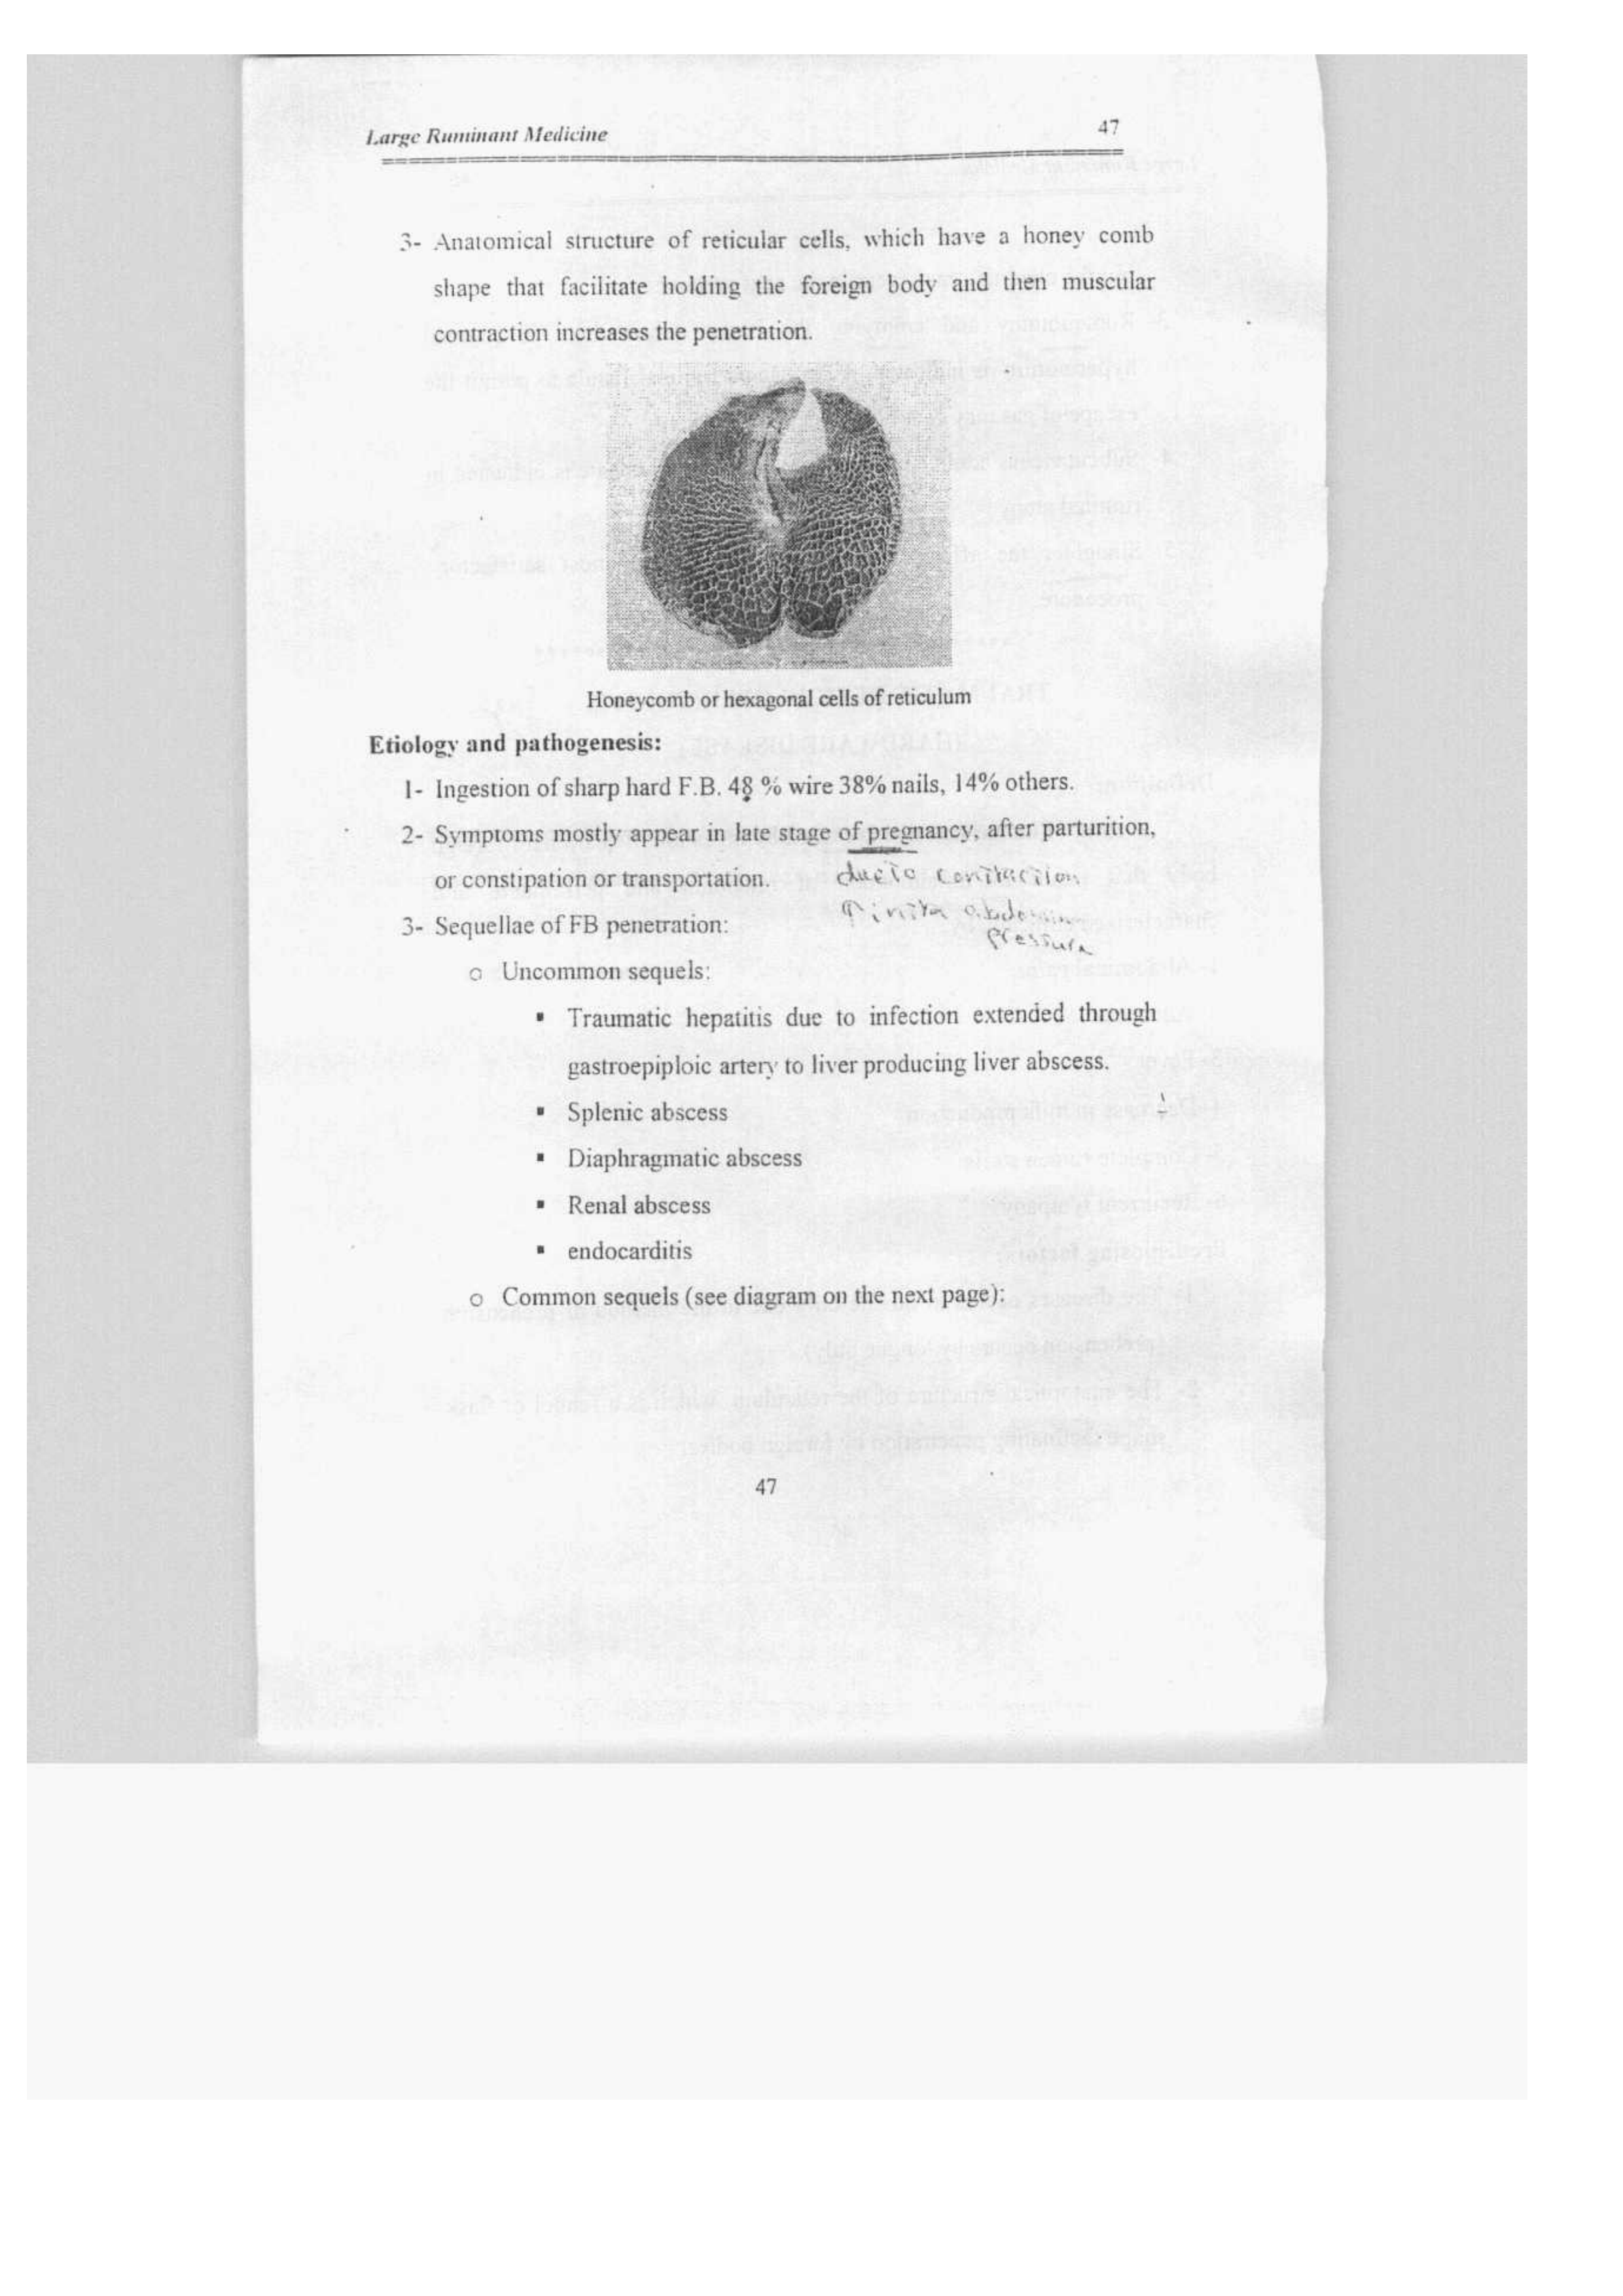 Large Ruminant Medicine 47
3- Anatomical structure of reticular cells, which have a honey comb
shape that facilitate holding the foreign body and then muscular
contraction increases the penetration.
Honeycomb or hexagonal cells of reticulum
Etiology and pathogenesis:
1- Ingestion of sharp hard F.B. 48 % wire 38% nails, 14% others.
2- Symptoms mostly appear in late stage of pregnancy, after parturition,
or constipation or transportation.
due to contraction
↑ intra abdomin
pressure
3- Sequellae of FB penetration:
o Uncommon sequels:
▪ Traumatic hepatitis due to infection extended through
gastroepiploic artery to liver producing liver abscess.
▪ Splenic abscess
▪ Diaphragmatic abscess
▪ Renal abscess
▪ endocarditis
o Common sequels (see diagram on the next page):
47